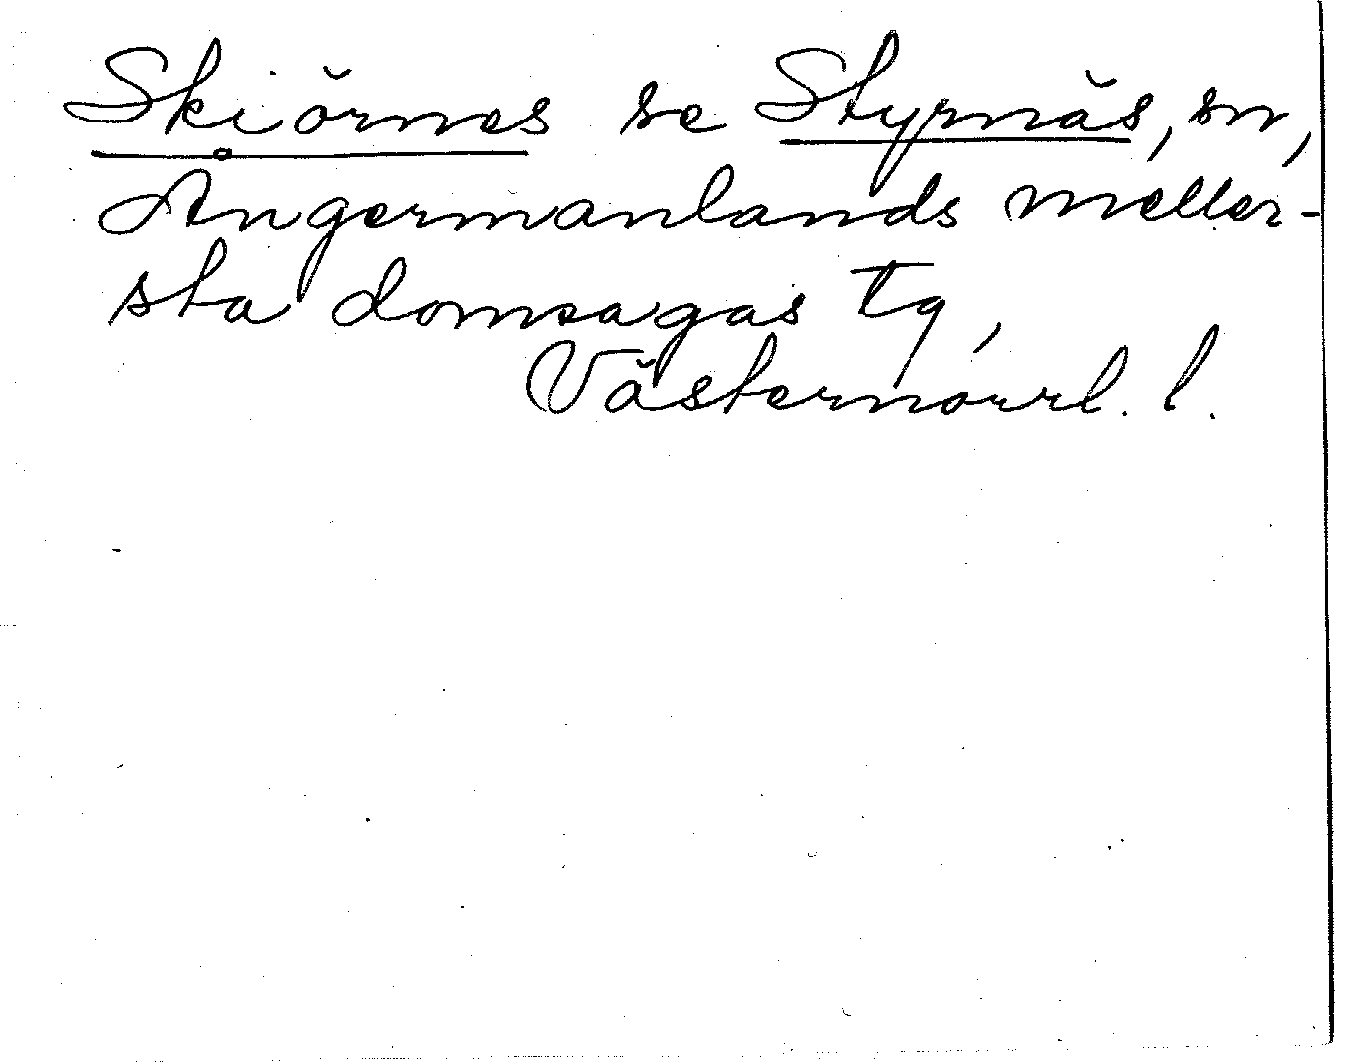 Skiörnes se Styrnäs, sn,
Ångermanlands meller-
sta domsagas tg,
Västernorrl. l.